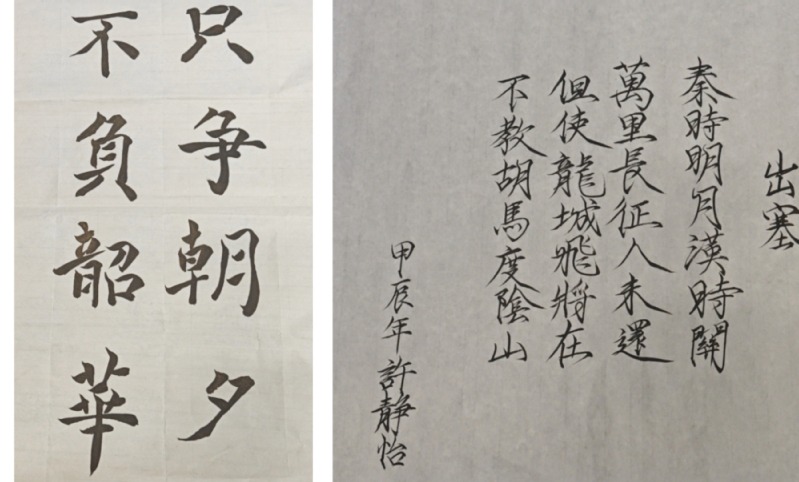 只争朝夕
不負韶華
出塞
秦時明月漢時關
萬里長征人未還
但使龍城飛將在
不教胡馬度陰山
甲辰年 許靜怡